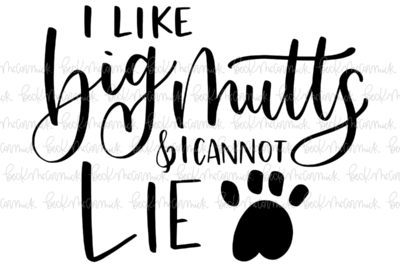 I LIKE
big Mutts
& I CANNOT
LIE